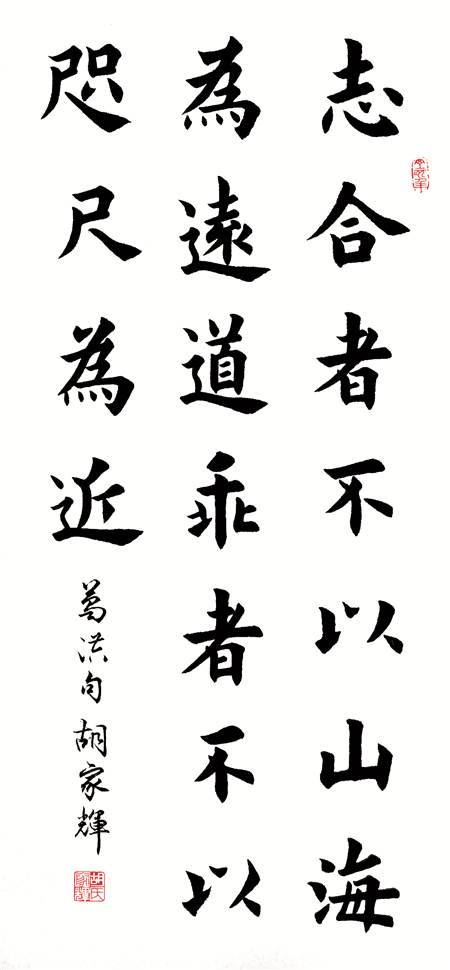 志合者不以山海
為遠道乖者不以
咫尺為近
葛洪句 胡家輝